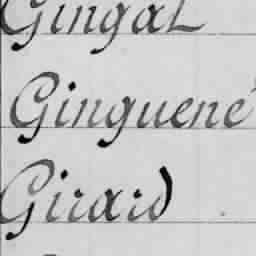 Gingal
Ginguené
Girard